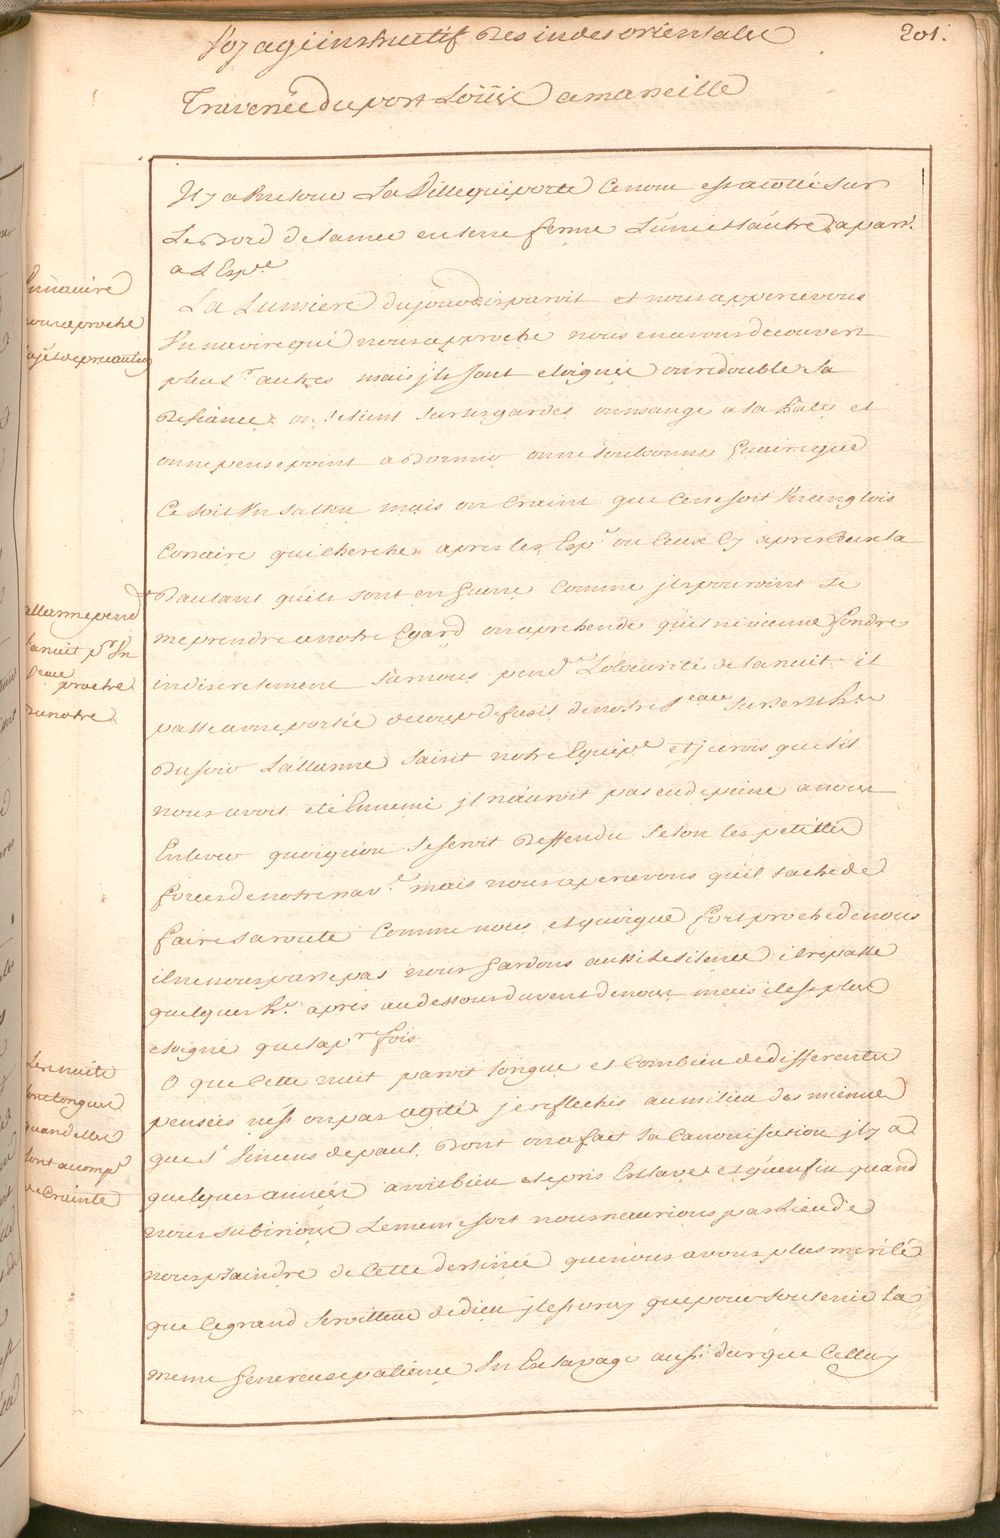 Voyage instructif Des indes orientales
201.
Traversée du port Loüis a marseille
Il y a une tour La Ville qui porte Ce nom est a coste sur
Le Bord de la mer en terre ferme L'une et l'autre apart.
a L'Esp.e
La Lumiere du jour disparoit et nous appercevons
Vn navire qui nous approche nous en avons decouvert
plus.rs autres mais ils sont eloignés on redouble sa
Defiance on se tient sur ses gardes on mange a la hate et
on ne pense point a Dormir on ne soubsonne Guaire que
Ce soit Vn saltin mais on Craint que Ce ne soit Vn anglois
Corsaire qui cherche apres les Esp.s ou Ceux Cy apres Eux la
D'autant qu'ils sont en Guerre Comme ils pouroint se
meprendre a notre Egard on aprehende qu'il ne vienne fondre
indiscretement sur nous pend.t L'obscurité de la nuit. il
passe a une portée de coup de fusil de notre V.eau sur les huit h.es
Du soir L'allarme saisit notre Equip.e et je crois que s'il
nous avoit été Ennemi il n'auroit pas eu de peine a nous
Enlever quoiqu'on se seroit Deffendu selon les petittes
forces de notre nav.e mais nous apercevons qu'il tache de
faire sa route Comme nous et quoique fort proche de nous
il ne nous parle pas nous Gardons aussi le silence il repasse
quelques h.es apres au dessous du vent de nous mais il est plus
eloigné que la p.re fois
O que Cette nuit paroit longue et Combien de differentes
pensées n'est on pas agité je reflechis au milieu des miennes
que S.t Vincens de paul, Dont on a fait la Canonisation il y a
quelques années avoit bien été pris Esclave et qu'enfin quand
nous subirions Le meme sort nous n'aurions pas Lieu de
nous plaindre de Cette destinée que nous avons plus merité
que Ce grand serviteur de dieu il est vray que pour soutenir La
meme Genereuse patience Vn Esclavage aussi dur que Celluy
Vn navire
nous aproche
sujet de precaution
allarme pend.t
la nuit p.r Vn
V.eau proche
du notre
Les nuits
sont longues
quand elles
sont acomp.s
de Crainte